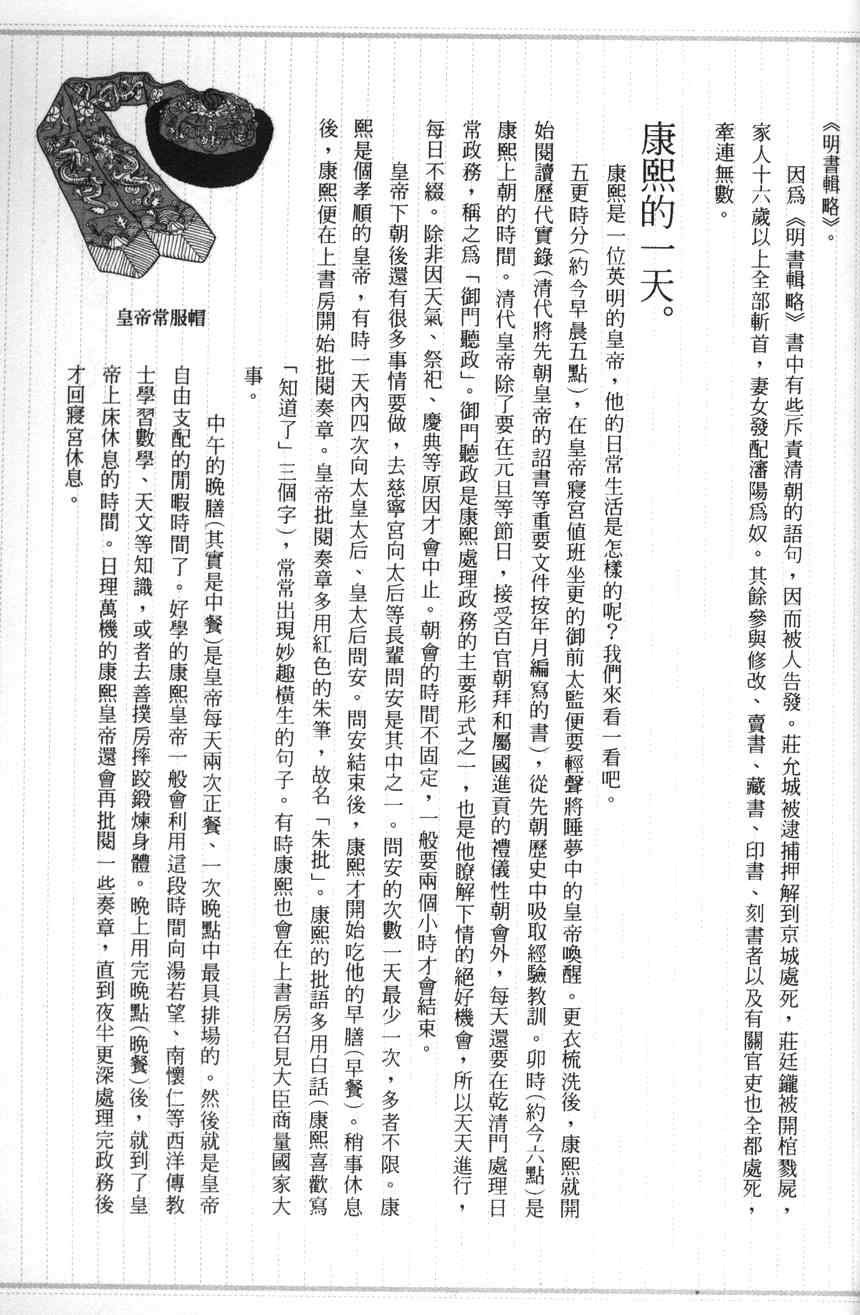 《明書輯略》。
因爲《明書輯略》書中有些斥責清朝的語句，因而被人告發。莊允城被逮捕押解到京城處死，莊廷鑨被開棺戮屍，
家人十六歲以上全部斬首，妻女發配瀋陽爲奴。其餘參與修改、賣書、藏書、印書、刻書者以及有關官吏也全都處死，
牽連無數。
康熙的一天。
康熙是一位英明的皇帝，他的日常生活是怎樣的呢？我們來看一看吧。
五更時分(約今早晨五點)，在皇帝寢宮值班坐更的御前太監便要輕聲將睡夢中的皇帝喚醒。更衣梳洗後，康熙就開
始閱讀歷代實錄(清代將先朝皇帝的詔書等重要文件按年月編寫的書)，從先朝歷史中吸取經驗教訓。卯時(約今六點)是
康熙上朝的時間。清代皇帝除了要在元旦等節日，接受百官朝拜和屬國進貢的禮儀性朝會外，每天還要在乾清門處理日
常政務，稱之爲「御門聽政」。御門聽政是康熙處理政務的主要形式之一，也是他瞭解下情的絕好機會，所以天天進行，
每日不綴。除非因天氣、祭祀、慶典等原因才會中止。朝會的時間不固定，一般要兩個小時才會結束。
皇帝下朝後還有很多事情要做，去慈寧宮向太后等長輩問安是其中之一。問安的次數一天最少一次，多者不限。康
熙是個孝順的皇帝，有時一天內四次向太皇太后、皇太后問安。問安結束後，康熙才開始吃他的早膳(早餐)。稍事休息
後，康熙便在上書房開始批閱奏章。皇帝批閱奏章多用紅色的朱筆，故名「朱批」。康熙的批語多用白話(康熙喜歡寫
「知道了」三個字)，常常出現妙趣橫生的句子。有時康熙也會在上書房召見大臣商量國家大
事。
中午的晚膳(其實是中餐)是皇帝每天兩次正餐、一次晚點中最具排場的。然後就是皇帝
自由支配的閒暇時間了。好學的康熙皇帝一般會利用這段時間向湯若望、南懷仁等西洋傳教
士學習數學、天文等知識，或者去善撲房摔跤鍛煉身體。晚上用完晚點(晚餐)後，就到了皇
帝上床休息的時間。日理萬機的康熙皇帝還會再批閱一些奏章，直到夜半更深處理完政務後
才回寢宮休息。
皇帝常服帽